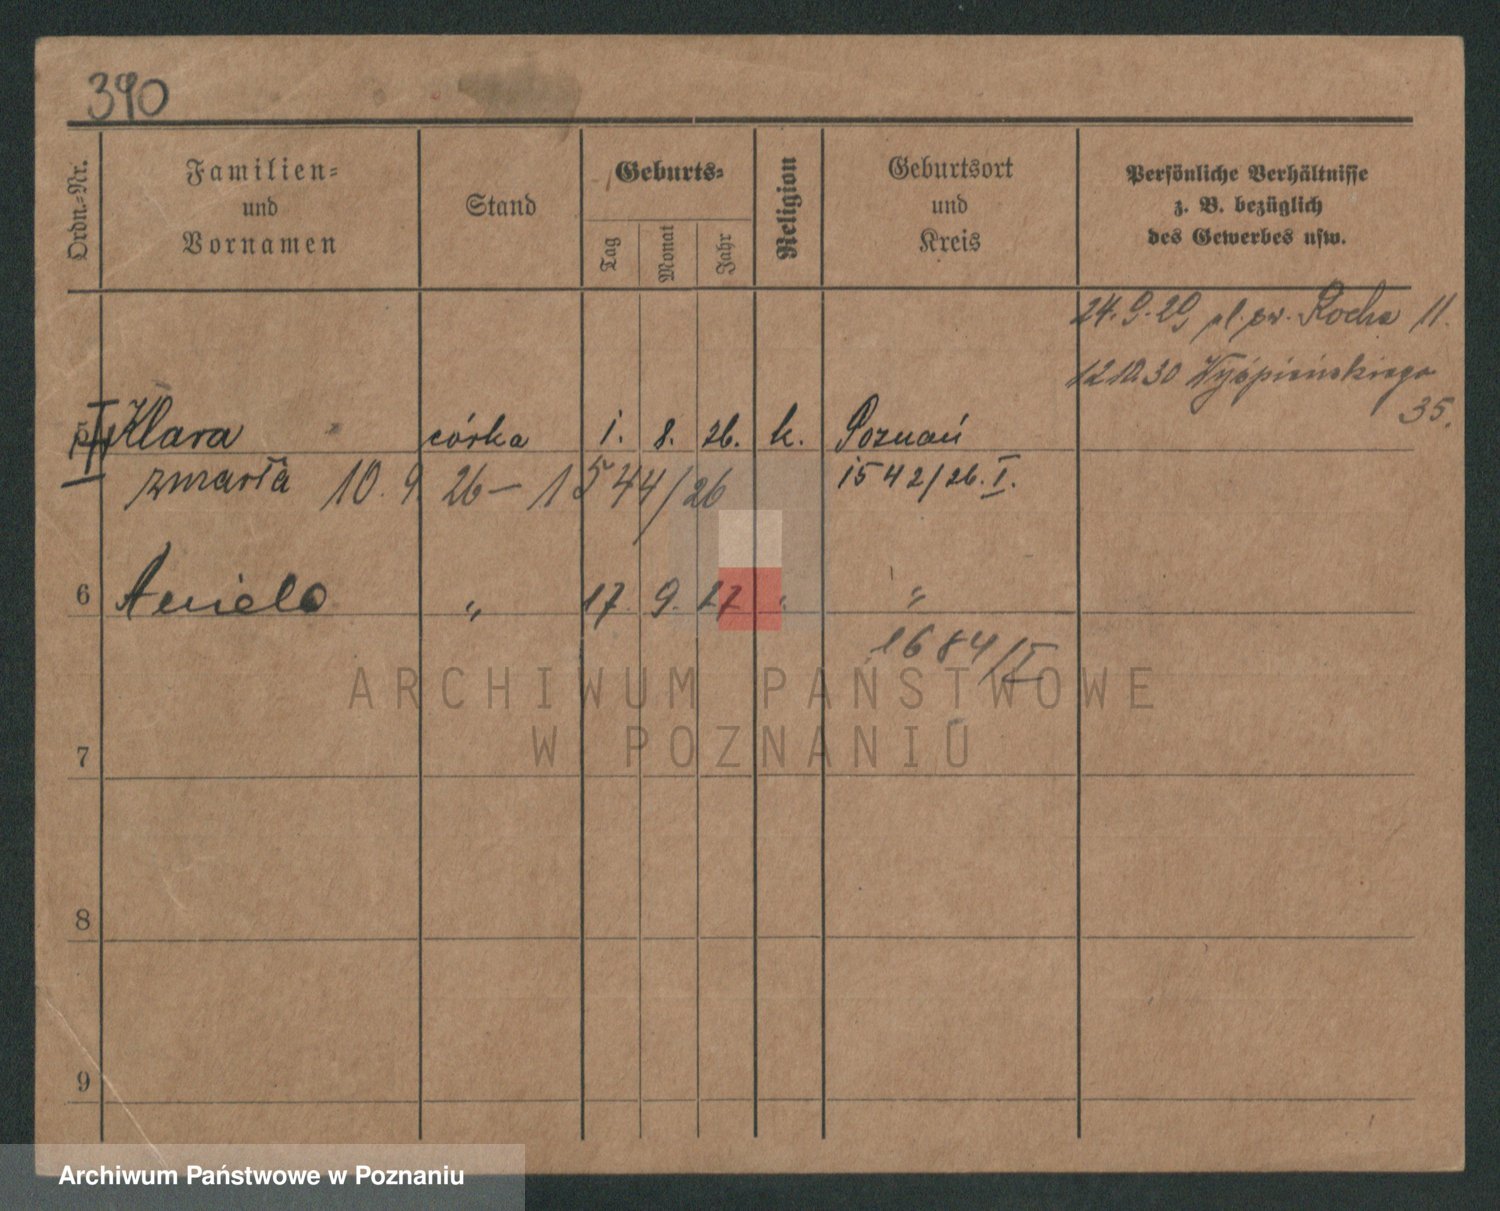 390
Ordn.-Nr.
Familien-
und
Vornamen
Stand
Geburts-
Tag
Monat
Jahr
Religion
Geburtsort
und
Kreis
Persönliche Verhältnisse
z. B. bezüglich
des Gewerbes usw.
24.9.29 pl. św. Rocha 11.
12.10.30 Wyspiańskiego
35.
5 Klara córka 1. 8. 26. k. Poznań
zmarła 10.9 26 – 1544/26 1542/26. I.
6 Aniela " 17. 9. 27 " "
1684/I
7
8
9
ARCHIWUM PAŃSTWOWE
W POZNANIU
Archiwum Państwowe w Poznaniu